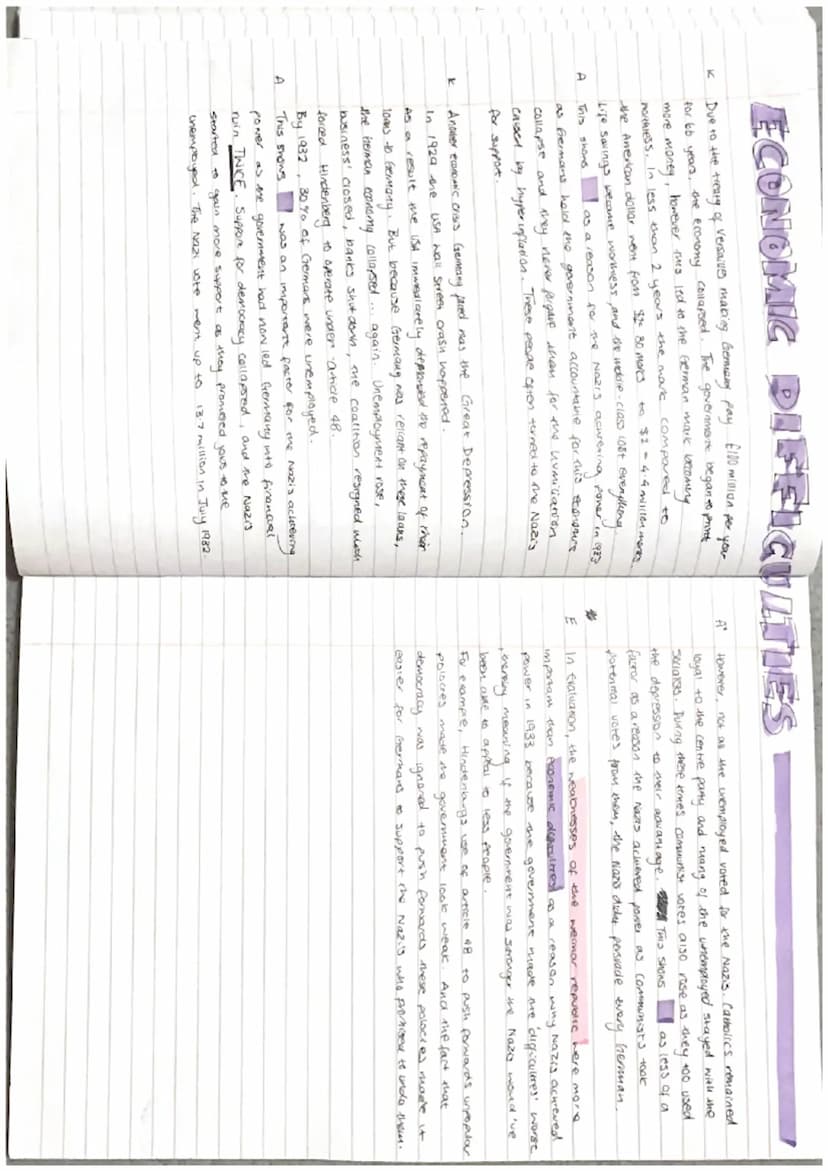 ECONOMIC DIFFICULTIES
K Due to the treaty of versailles making Germany pay £100 million per year
for 66 years, the economy collapsed. The government began to print
more money, however this led to the German mark becoming
worthless. In less than 2 years the mark compared to
the American dollar went from 30 marks to $1 = 4.4 million marks
Life savings became worthless, and the middle-class lost everything.
A This shows as a reason for the Nazis achieving power in 1933
as Germans hold the government accountable for this economic
collapse and they never forgave them for the humiliation
caused by hyperinflation. These people often turned to the Nazis
for support.
K Another economic crisis Germany faced was the Great Depression.
In 1929 the USA wall street crash happened.
As a result the USA immediately demanded the repayment of their
loans to Germany. But because Germany was reliant on these loans,
the German economy collapsed... again. Unemployment rose,
business' closed, banks shut down, the coalition resigned which
forced Hindenberg to operate under article 48.
By 1932, 30% of Germans were unemployed.
A This shows was an important factor for the Nazis achieving
power as the government had now led Germany into financial
ruin TWICE. Support for democracy collapsed, and the Nazis
started to gain more support as they promised jobs to the
unemployed. The Nazi vote went up to 13.7 million in July 1932.
A+ However, not all the unemployed voted for the Nazis. Catholics remained
loyal to the centre party and many of the unemployed stayed with the
socialists. During these times communist votes also rose as they too used
the depression to their advantage. This shows as less of a
factor as a reason the Nazis achieved power as communists took
potential votes from them, the Nazis didnt persuade every German.
E In evaluation, the weaknesses of the weimar republic were more
important than economic difficulties as a reason why Nazis achieved
power in 1933 because the government made the 'difficulties' worse
, thereby meaning if the government was stronger the Nazis would've
been able to appeal to less people.
For example, Hindenburgs use of article 48 to push forwards unpopular
policies made the government look weak. And the fact that
democracy was ignored to push forwards these policies made it
easier for Germans to support the Nazis who promised to undo them.